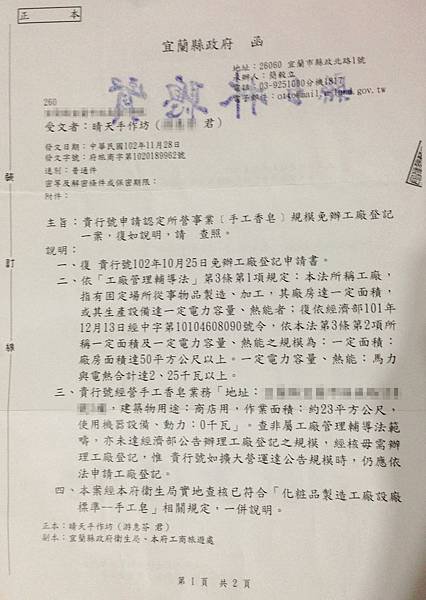 正本
宜蘭縣政府 函
地址：26060 宜蘭市縣政北路1號
承辦人：簡毅立
電話：03-9251000分機1817
260
受文者：晴天手作坊（ 君）
發文日期：中華民國102年11月28日
發文字號：府旅商字第1020189962號
速別：普通件
密等及解密條件或保密期限：
附件：
主旨：貴行號申請認定所營事業〔手工香皂〕規模免辦工廠登記
一案，復如說明，請 查照。
說明：
一、復 貴行號102年10月25日免辦工廠登記申請書。
二、依「工廠管理輔導法」第3條第1項規定：本法所稱工廠，
指有固定場所從事物品製造、加工，其廠房達一定面積，
或其生產設備達一定電力容量、熱能者；復依經濟部101年
12月13日經中字第10104608090號令，依本法第3條第2項所
稱一定面積及一定電力容量、熱能之規模為：一定面積：
廠房面積達50平方公尺以上。一定電力容量、熱能：馬力
與電熱合計達2、25千瓦以上。
三、貴行號經營手工香皂業務「地址：
，建築物用途：商店用，作業面積：約23平方公尺，
使用機器設備、動力：0千瓦」。查非屬工廠管理輔導法範
疇，亦未達經濟部公告辦理工廠登記之規模，經核毋需辦
理工廠登記，惟 貴行號如擴大營運達公告規模時，仍應依
法申請工廠登記。
四、本案經本府衛生局實地查核已符合「化粧品製造工廠設廠
標準--手工皂」相關規定，一併說明。
正本：晴天手作坊（游息芬 君）
副本：宜蘭縣政府衛生局、本府工商旅遊處
裝
訂
線
第1頁 共2頁